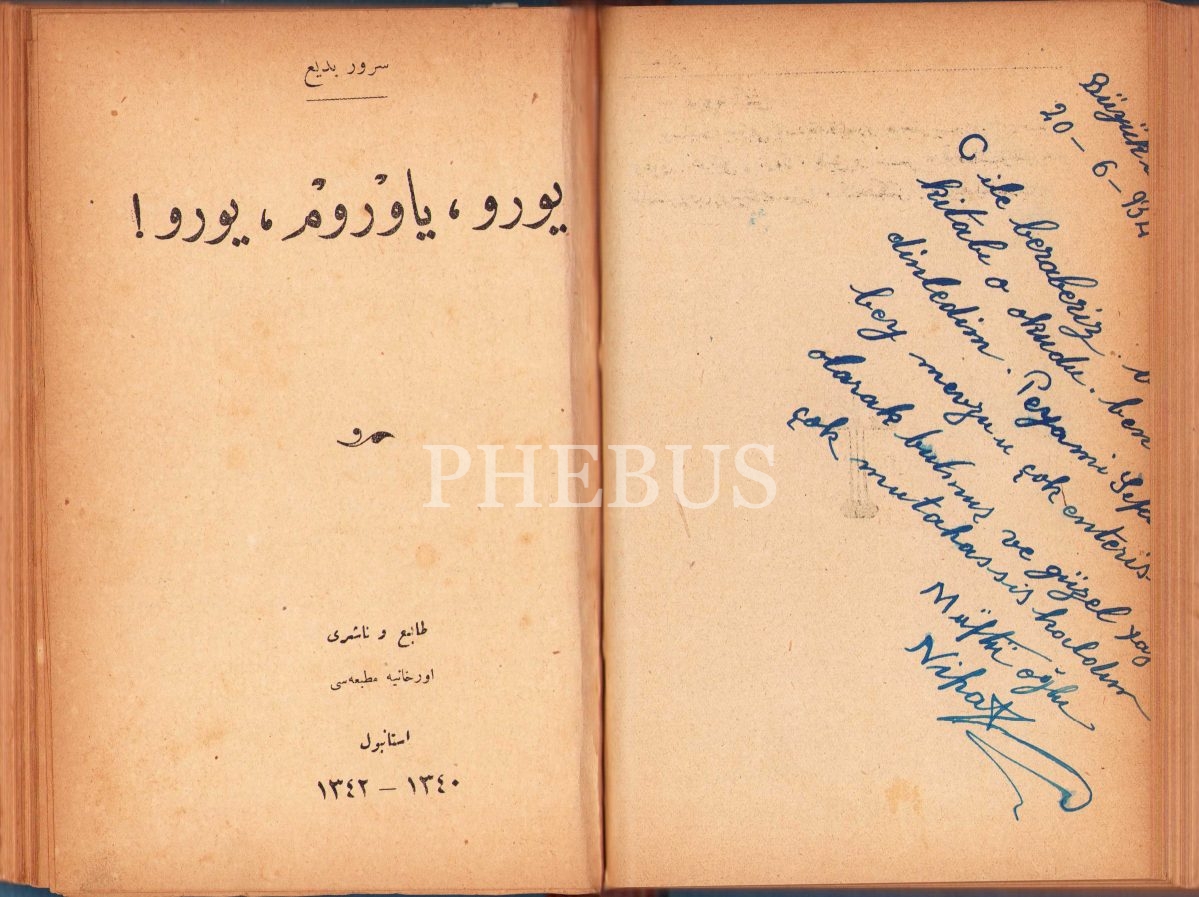 سرور بديع
يورو ، ياوْرومْ ، يورو !
طابع و ناشرى
اورخانيه مطبعه‌سى
استانبول
١٣٤٠ — ١٣٤٢
PHEBUS
20 - 6 - 934
C ile beraberiz.
kitabı o okudu. ben
dinledim. Peyami Sefa
bey mevzuu çok enteris-
olarak bulmuş ve güzel yaz
çok mutahassis kaldım
Müftü oğlu
Nihat